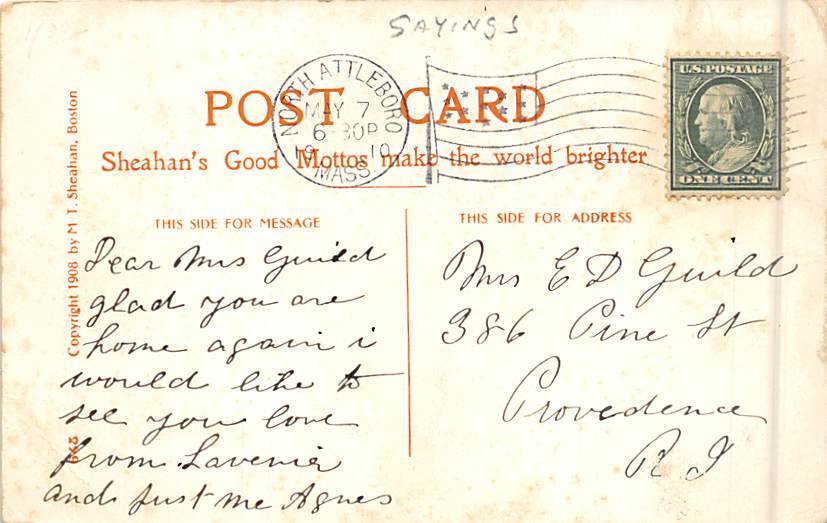 SAYINGS
POST CARD
NORTH ATTLEBORO
MAY 7
6-30P
1910
MASS.
U.S. POSTAGE
ONE CENT
Sheahan's Good Mottos make the world brighter
Copyright 1908 by M T. Sheahan, Boston
THIS SIDE FOR MESSAGE
Dear Mrs Guild
glad you are
home again i
would like to
see you love
from Lavenia
and just me Agnes
THIS SIDE FOR ADDRESS
Mrs E D Guild
386 Pine St
Provedence
R I